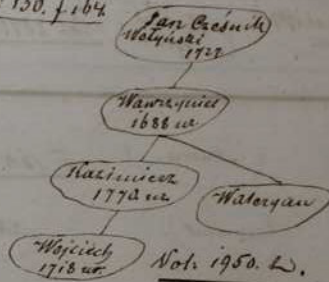 130. f 164
Jan Cześnik
Wołyński
1722
Wawrzyniec
1688 ur.
Kazimierz
1770 ur.
Waleryan
Wojciech
1718 ur.
Vol: 1950. L.